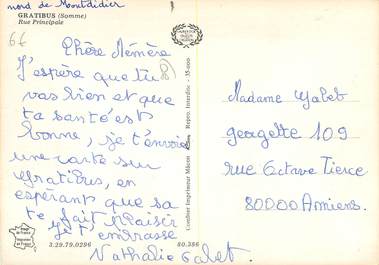 nord de Montdidier
GRATIBUS (Somme)
Rue Principale
Chère Mémère
J'espère que tu
vas bien et que
ta santé est
bonne, je t'envoie
une carte sur
gratibus, en
espérant que sa
te fait plaisir
je t'embrasse
Nathalie Gabet.
Combier Imprimeur Mâcon
Repro. Interdite - 35-000
Madame Gabet
georgette 109
rue Octave Tierce
80000 Amiens.
3.29.79.0296
80.386